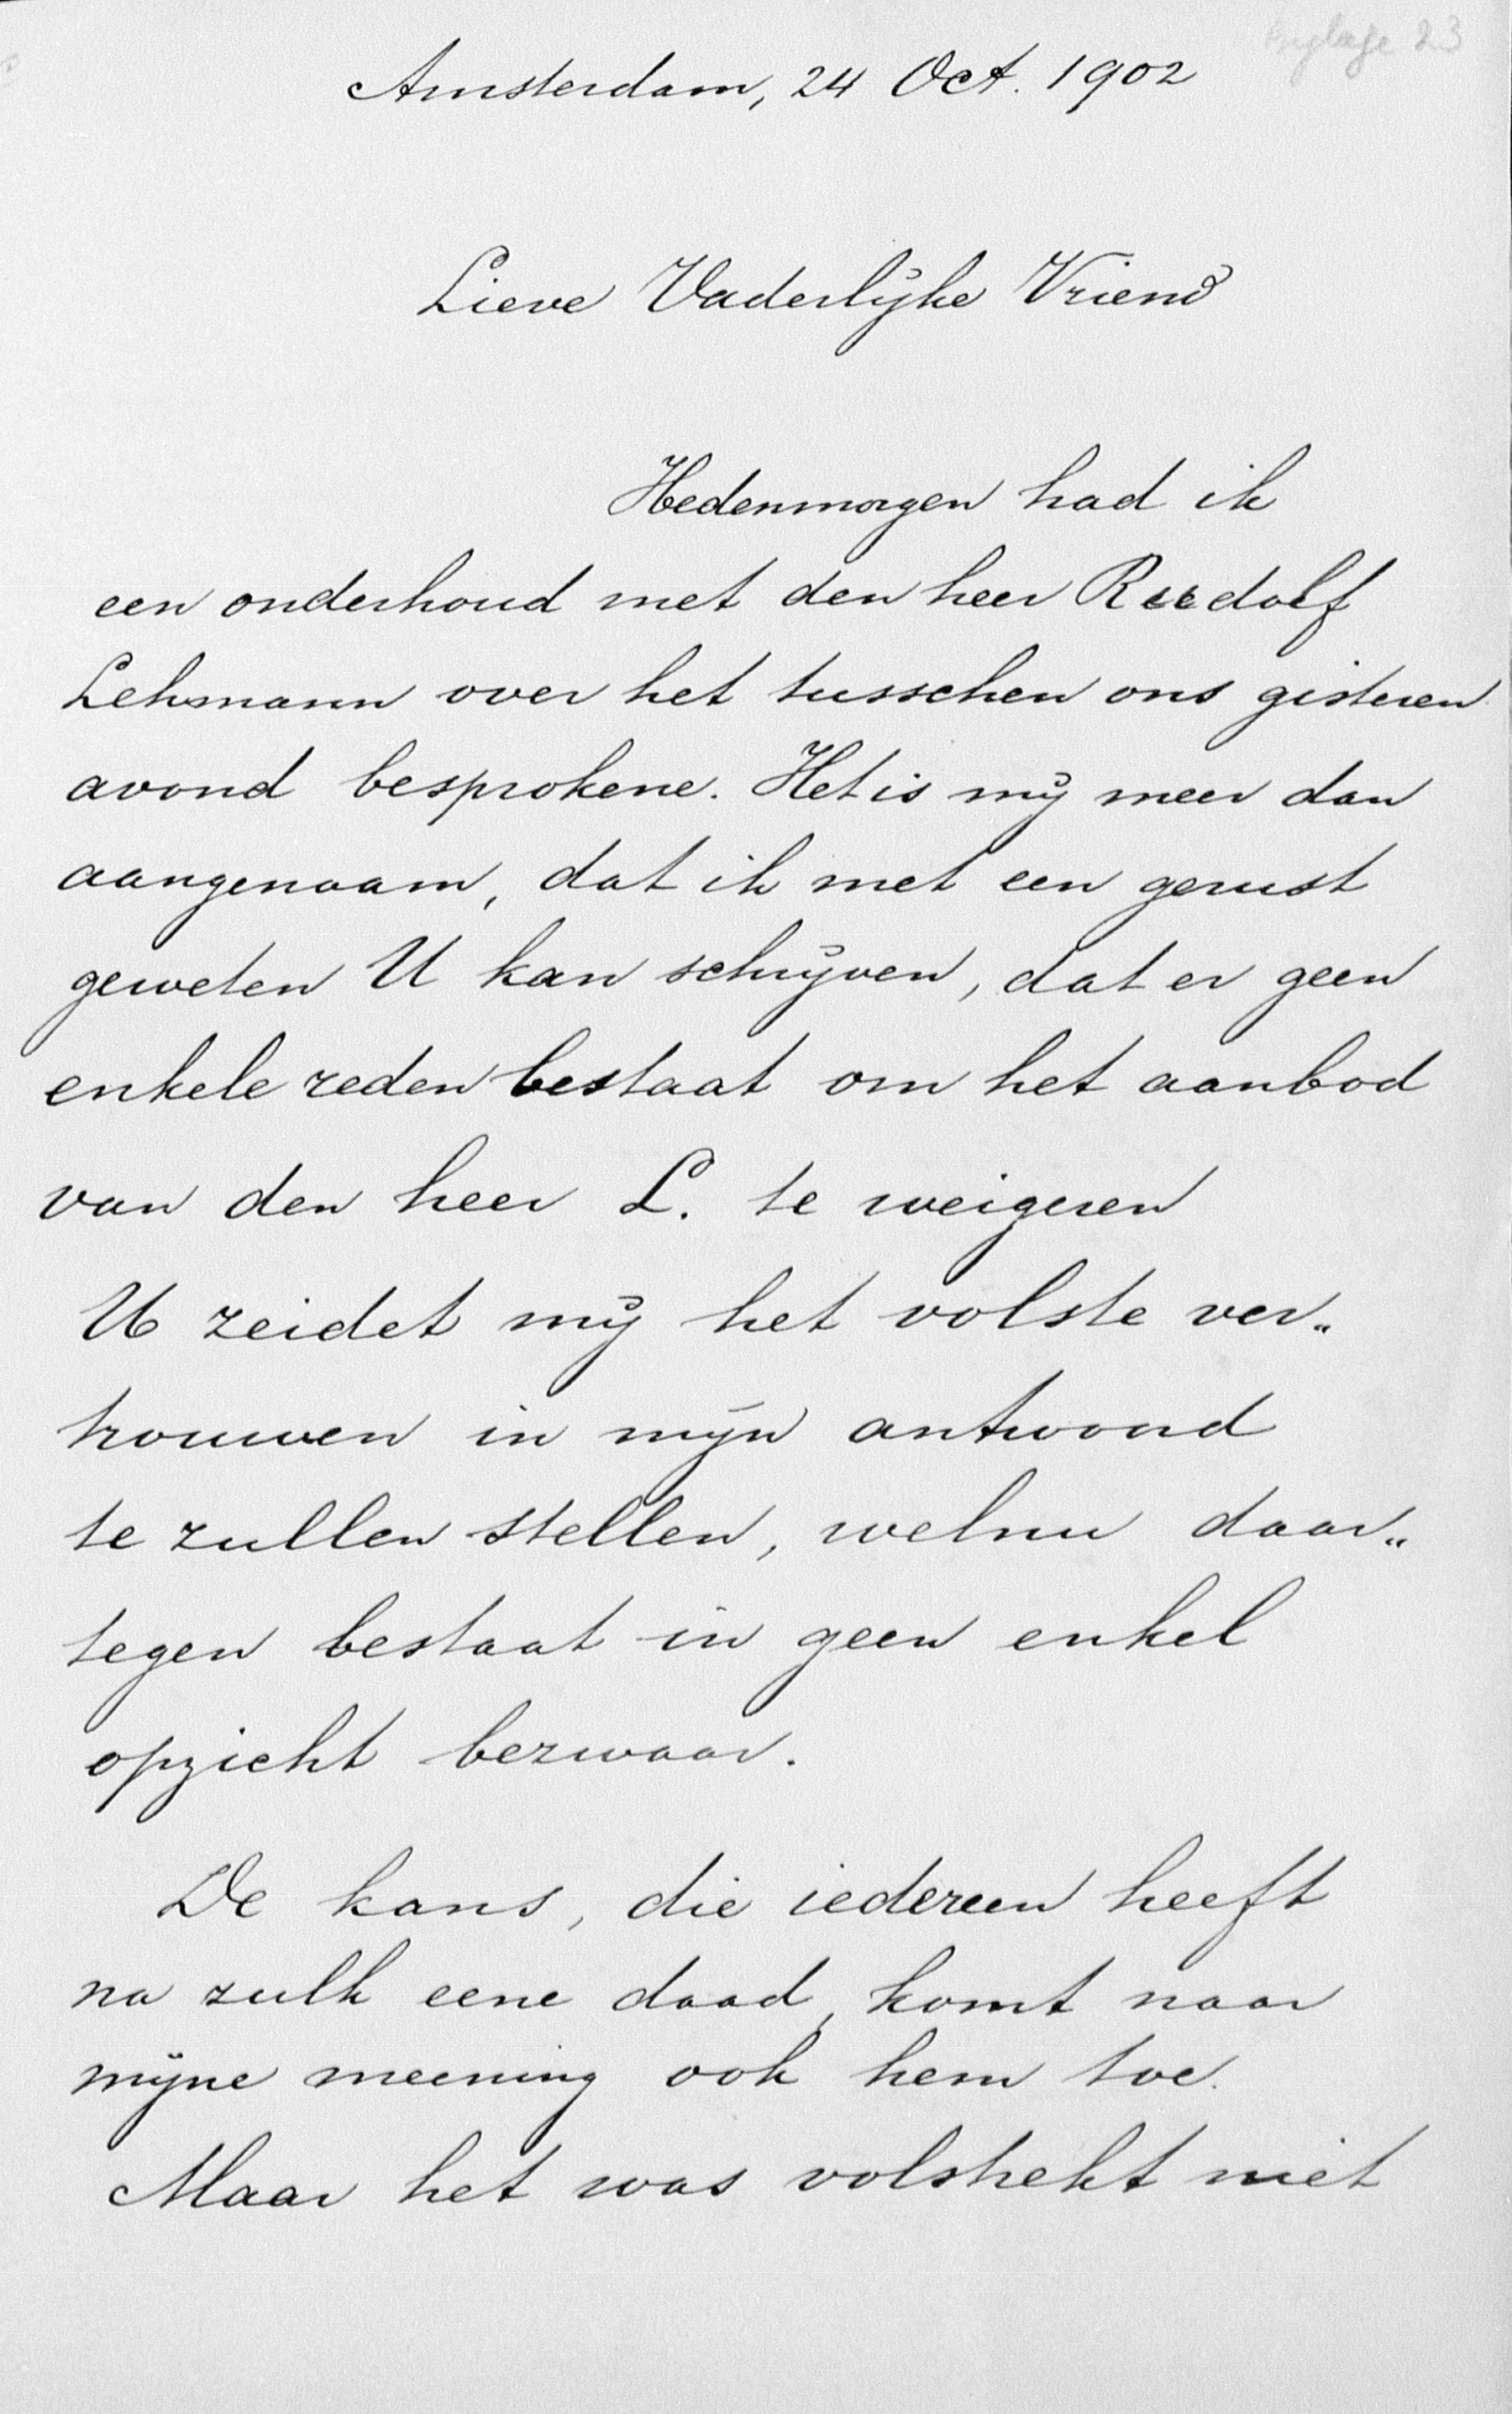 Bijlage 23
Amsterdam, 24 Oct. 1902
Lieve Vaderlijke Vriend
Hedenmorgen had ik
een onderhoud met den heer Rudolf
Lehmann over het tusschen ons gisteren
avond besprokene. Het is mij meer dan
aangenaam, dat ik met een gerust
geweten U kan schrijven, dat er geen
enkele reden bestaat om het aanbod
van den heer L. te weigeren
U zeidet mij het volste ver„
trouwen in mijn antwoord
te zullen stellen, welnu daar„
tegen bestaat in geen enkel
opzicht bezwaar.
De kans, die iedereen heeft
na zulk eene daad, komt naar
mijne meening ook hem toe.
Maar het was volstrekt niet